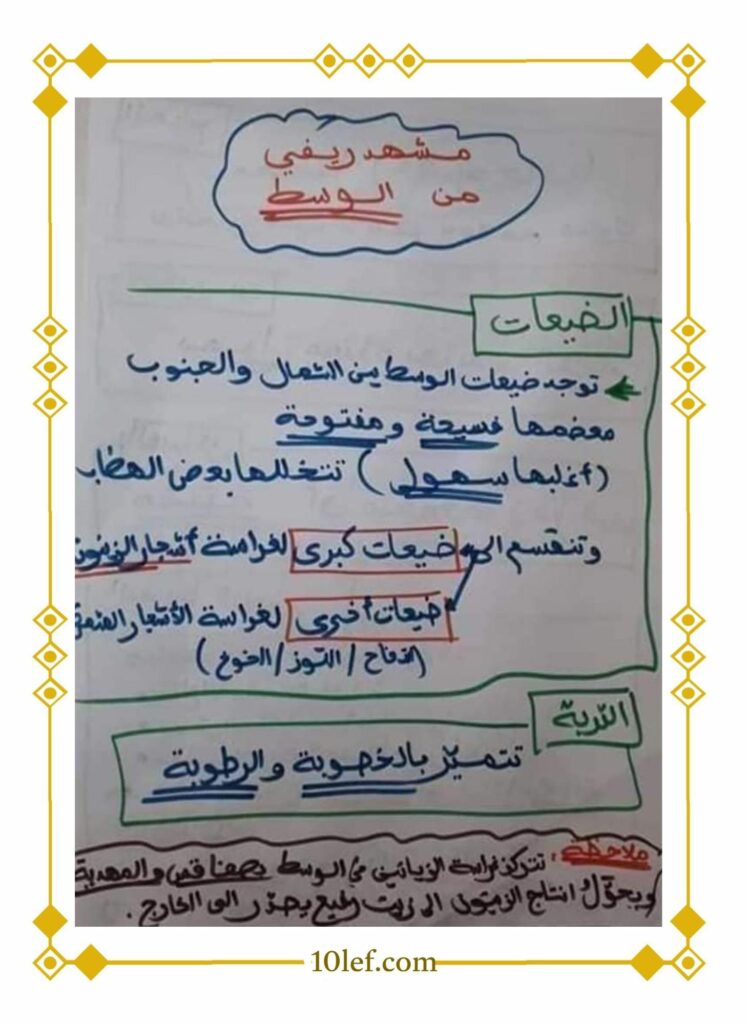 مشهد ريفي
من الوسط
الضيعات
توجد ضيعات الوسط بين الشمال والجنوب
معضمها فسيحة ومفتوحة
(أغلبها سهولي) تتخللها بعض الهضاب
وتنقسم الى ضيعات كبرى لغراسة أشجار الزيتون
ضيعات أخرى لغراسة الأشجار المثمرة
(التفاح / اللوز / الخوخ)
التربة
تتميّز بالخصوبة والرطوبة
ملاحظة: تتركز غراسة الزياتين في الوسط بصفاقس والمهدية
ويحوّل انتاج الزيتون الى زيت يصدّر الى الخارج.
10lef.com